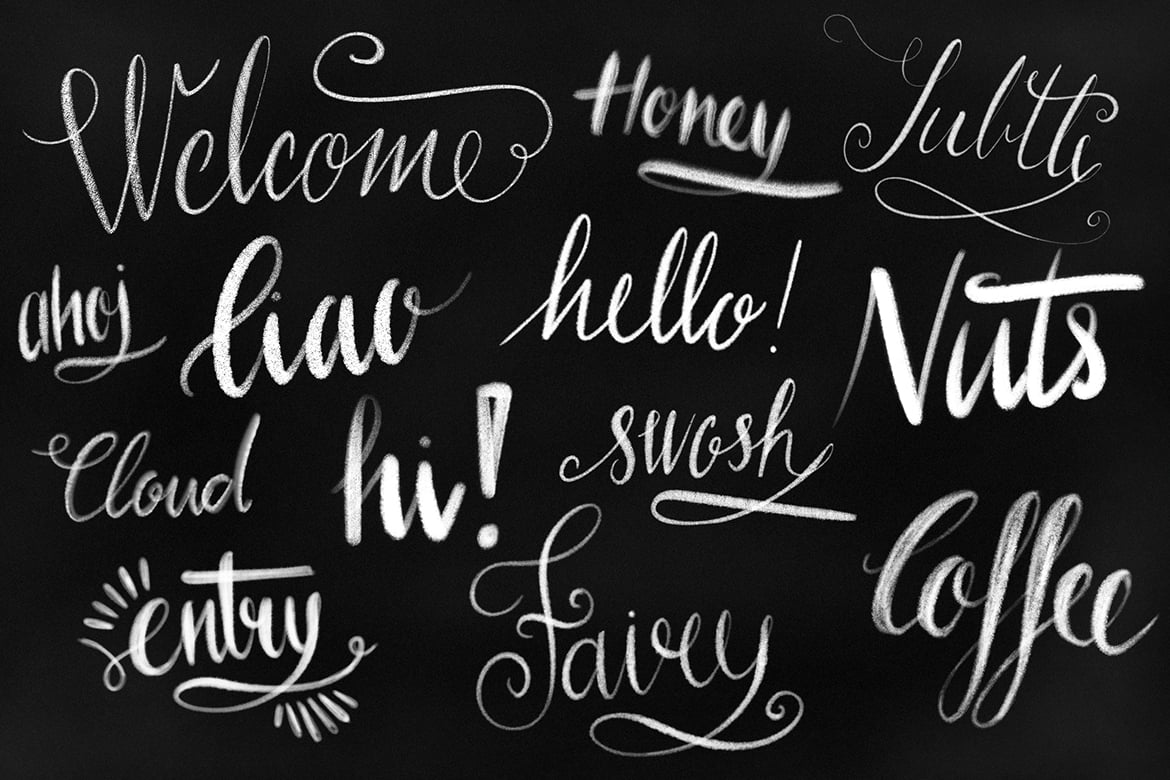 Welcome
Honey
Subtle
ahoj
Ciao
hello!
Nuts
Cloud
hi!
swosh
Coffee
entry
Fairey